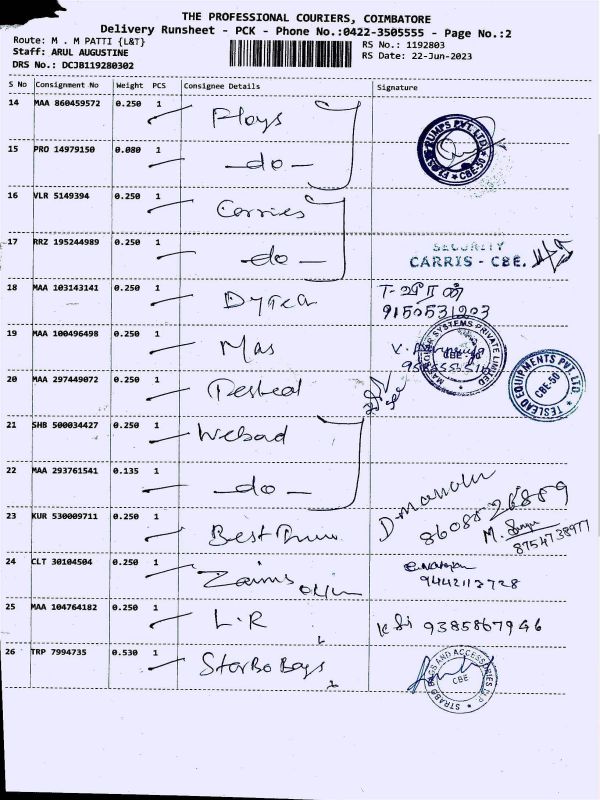 THE PROFESSIONAL COURIERS, COIMBATORE
Delivery Runsheet - PCK - Phone No.:0422-3505555 - Page No.:2
Route: M . M PATTI {L&T}
RS No.: 1192803
Staff: ARUL AUGUSTINE
RS Date: 22-Jun-2023
DRS No.: DCJB119280302
S No Consignment No Weight PCS Consignee Details Signature
14 MAA 860459572 0.250 1 Ploys
15 PRO 14979150 0.080 1 -do- PUMPS PVT. LTD CBE-50
16 VLR 5149394 0.250 1 Carries
17 RRZ 195244989 0.250 1 -do- SECURITY
CARRIS - CBE.
18 MAA 103143141 0.250 1
T-வீரன்
9150531203
19 MAA 100496498 0.250 1 Mas SYSTEMS PRIVATE LIMITED CBE
20 MAA 297449072 0.250 1 TESLEAD EQUIPMENTS PVT. LTD. CBE-50
21 SHB 500034427 0.250 1
22 MAA 293761541 0.135 1 -do-
23 KUR 530009711 0.250 1 Best D-manoh
8608826889
M.
8754738977
24 CLT 30104504 0.250 1
9442113728
25 MAA 104764182 0.250 1 L.R 9385867946
26 TRP 7994735 0.530 1 Starbo Bags STRABO BAGS AND ACCESSORIES CBE